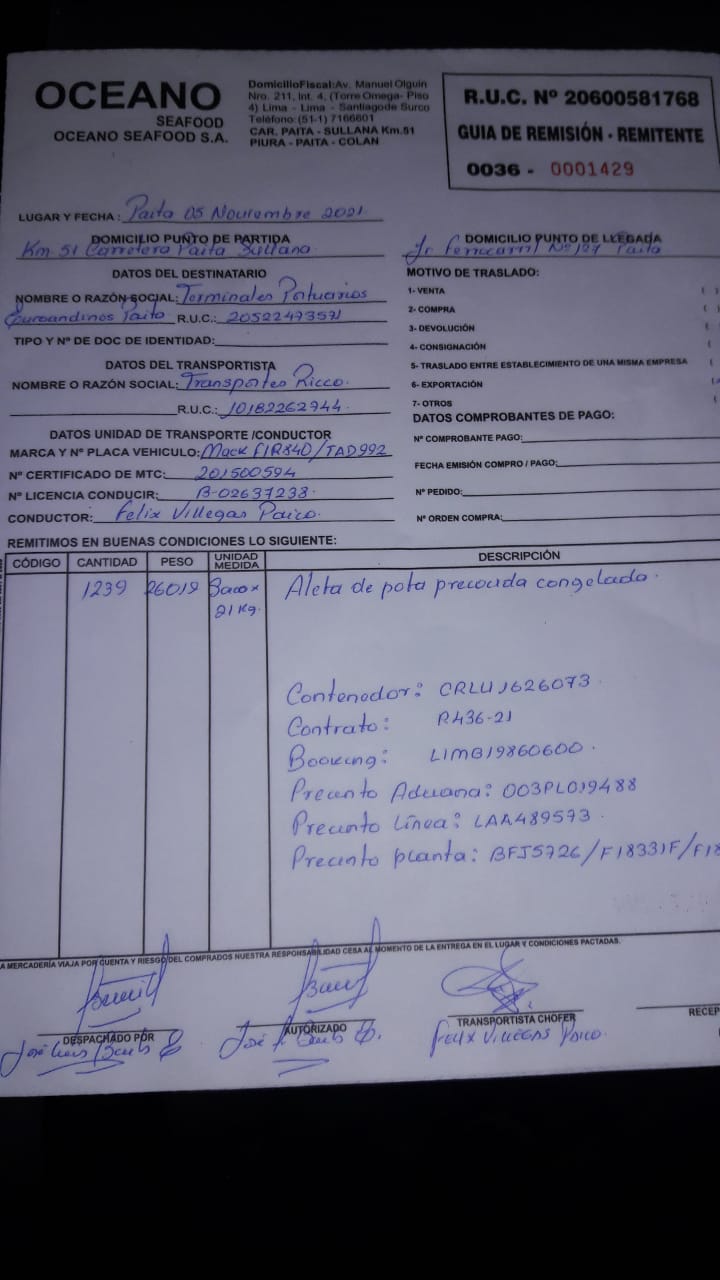 OCEANO
SEAFOOD
OCEANO SEAFOOD S.A.
DomicilioFiscal:Av. Manuel Olguin
Nro. 211, Int. 4, (Torre Omega- Piso
4) Lima - Lima - Santiagode Surco
Teléfono:(51-1) 7166601
CAR. PAITA - SULLANA Km.51
PIURA - PAITA - COLAN
R.U.C. Nº 20600581768
GUIA DE REMISIÓN - REMITENTE
0036 - 0001429
LUGAR Y FECHA : Paita 05 Noviembre 2021
DOMICILIO PUNTO DE PARTIDA
Km 51 Carretera Paita Sullana
DOMICILIO PUNTO DE LLEGADA
Jr Ferrocarril Nº 127 Paita
DATOS DEL DESTINATARIO
NOMBRE O RAZÓN SOCIAL: Terminales Portuarios
Euroandinos Paita R.U.C.: 20522473571
TIPO Y Nº DE DOC DE IDENTIDAD:
DATOS DEL TRANSPORTISTA
NOMBRE O RAZÓN SOCIAL: Transportes Ricco.
R.U.C.: 10182262944
DATOS UNIDAD DE TRANSPORTE /CONDUCTOR
MARCA Y Nº PLACA VEHICULO: Mack F1R840/TAD992
Nº CERTIFICADO DE MTC: 201500594
Nº LICENCIA CONDUCIR: B-02637238.
CONDUCTOR: Felix Villegas Paico.
MOTIVO DE TRASLADO:
1- VENTA ( )
2- COMPRA (
3- DEVOLUCIÓN (
4- CONSIGNACIÓN (
5- TRASLADO ENTRE ESTABLECIMIENTO DE UNA MISMA EMPRESA (
6- EXPORTACIÓN (
7- OTROS (
DATOS COMPROBANTES DE PAGO:
Nº COMPROBANTE PAGO:
FECHA EMISIÓN COMPRO / PAGO:
Nº PEDIDO:
Nº ORDEN COMPRA:
REMITIMOS EN BUENAS CONDICIONES LO SIGUIENTE:
CÓDIGO CANTIDAD PESO UNIDAD MEDIDA DESCRIPCIÓN
1239 26019 Saco x Aleta de pota precocida congelada.
21 Kg.
Contenedor: CRLU1626073
Contrato: R436-21
Booking: LIMB19860600.
Precinto Aduana: 003PL019488
Precinto Línea: LAA489573.
Precinto planta: BFJ5726/F18331F/F18
A MERCADERÍA VIAJA POR CUENTA Y RIESGO DEL COMPRADOS NUESTRA RESPONSABILIDAD CESA AL MOMENTO DE LA ENTREGA EN EL LUGAR Y CONDICIONES PACTADAS.
DESPACHADO POR
AUTORIZADO
TRANSPORTISTA CHOFER
RECEP
José
José
FELIX VILLEGAS PAICO